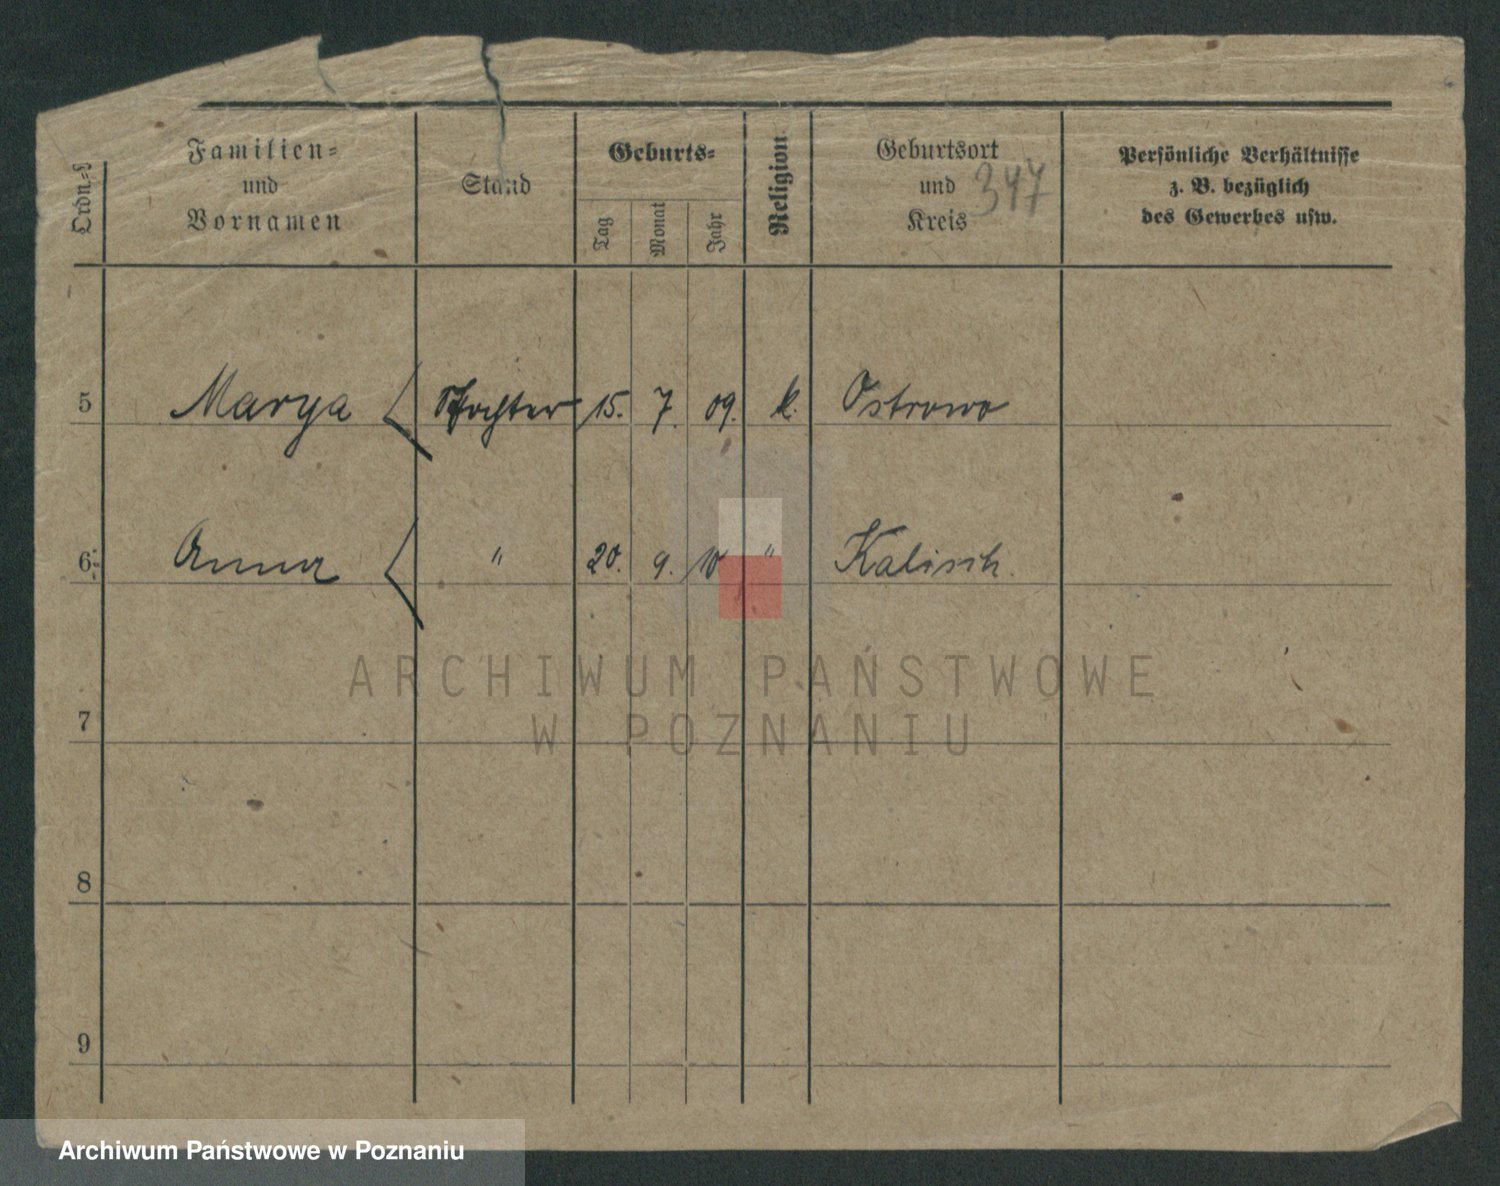 Ordn.=
Familien=
und
Vornamen
Stand
Geburts=
Tag
Monat
Jahr
Religion
Geburtsort
und
Kreis
347
Persönliche Verhältnisse
z. B. bezüglich
des Gewerbes usw.
5 Marya Tochter 15. 7. 09. k. Ostrowo
6 Anna " 20. 9. 10 " Kalisch.
ARCHIWUM PAŃSTWOWE
W POZNANIU
7
8
9
Archiwum Państwowe w Poznaniu